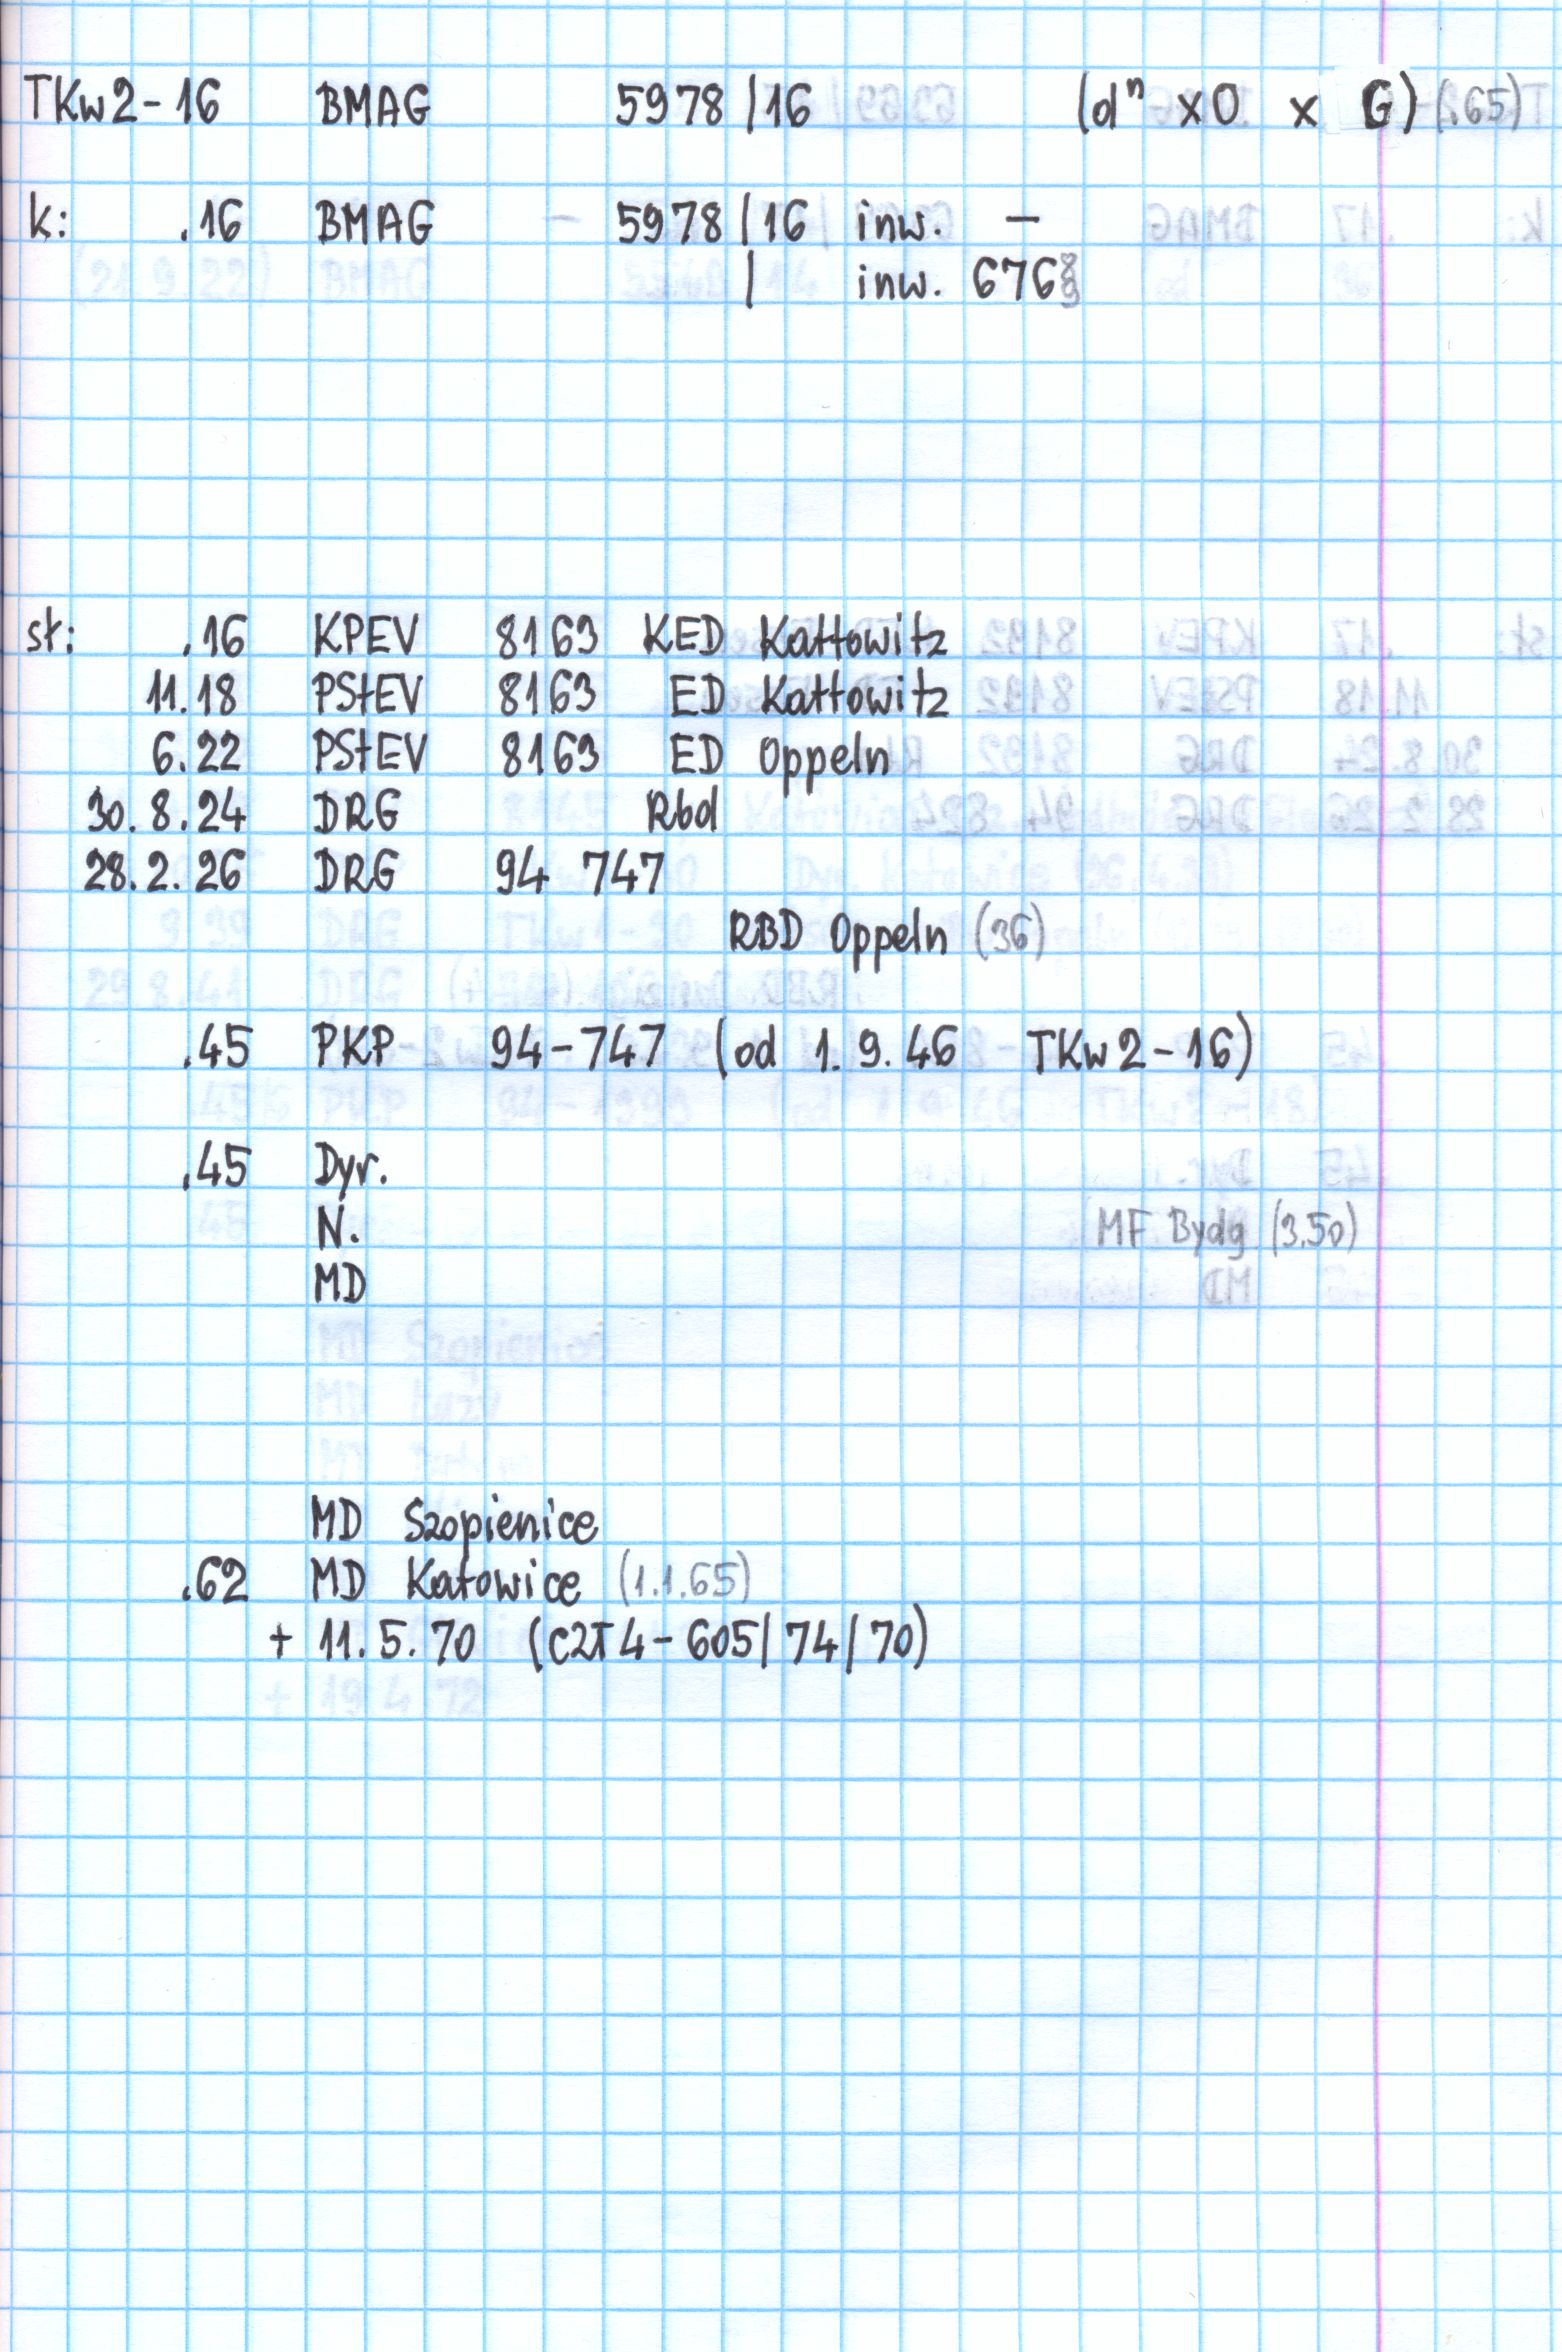 TKw2-16 BMAG 5978/16 (dⁿ x O x G) (.65)
k: .16 BMAG 5978/16 inw. -
/ inw. 676
st: .16 KPEV 8163 KED Kattowitz
11.18 PStEV 8163 ED Kattowitz
6.22 PStEV 8163 ED Oppeln
30.8.24 DRG Rbd
28.2.26 DRG 94 747
RBD Oppeln (36)
.45 PKP 94-747 (od 1.9.46 TKw2-16)
.45 Dyr.
N. MF Bydg (3.50)
MD
MD Szopienice
.62 MD Katowice (1.1.65)
+ 11.5.70 (C2T4-605/74/70)